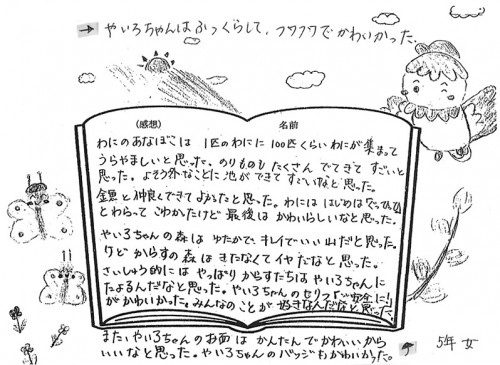 → やいろちゃんはふっくらして、フワフワでかわいかった。
(感想) 名前
わにのあなぼこは 1匹のわにに 100匹くらいわにが集まって
うらやましいと思った。のりものも たくさん でてきて すごいと
思った。よそう外なことに 池が できて すごいなと思った。
と仲良くできて よかったと思った。わには はじめは
とわらって こわかったけど 最後は かわいらしいなと思った。
やいろちゃんの森は ゆたかで、キレイでいい山だと思った。
けど からすの 森は きたなくて イヤだなと思った。
さいしゅう的には やっぱり からすたちは やいろちゃんに
たよるんだなと思った。やいろちゃんのセリフ
がかわいかった。みんなのことが 好きなんだなと思った。
また、やいろちゃんの お面は かんたんで かわいいから
いいなと思った。やいろちゃんの バッジも かわいかった。
5年 女